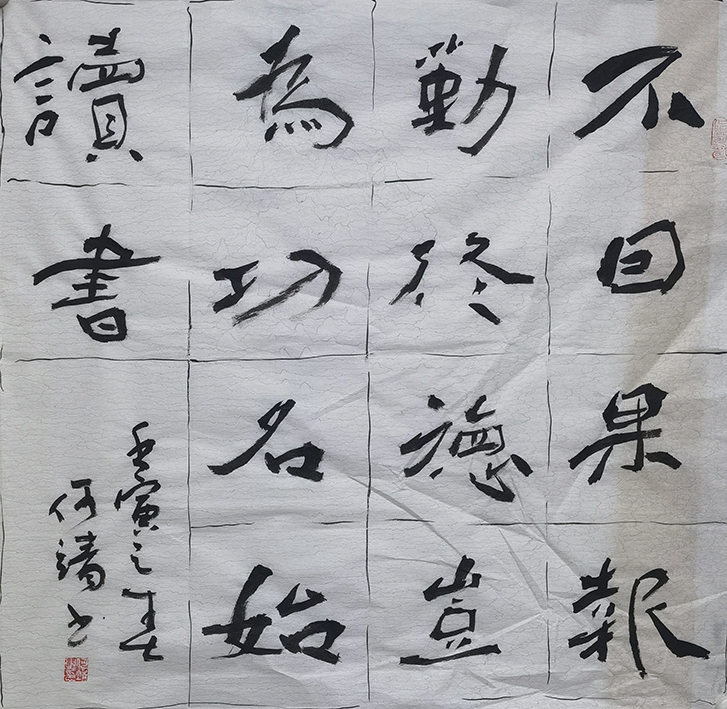 不因果報
勤修德豈
為功名始
讀書
壬寅之春
何靖书